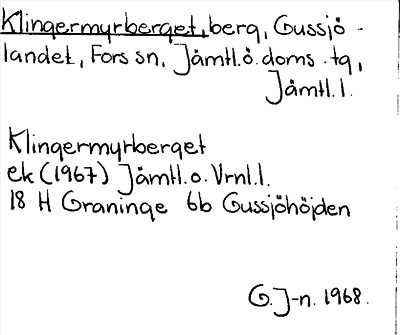 Klingermyrberget, berg, Gussjö-
landet, Fors sn, Jämtl.ö. doms. tg,
Jämtl. l.
Klingermyrberget
ek (1967) Jämtl. o. Vrnl. l.
18 H Graninge 6b Gussjöhöjden
G. J-n. 1968.